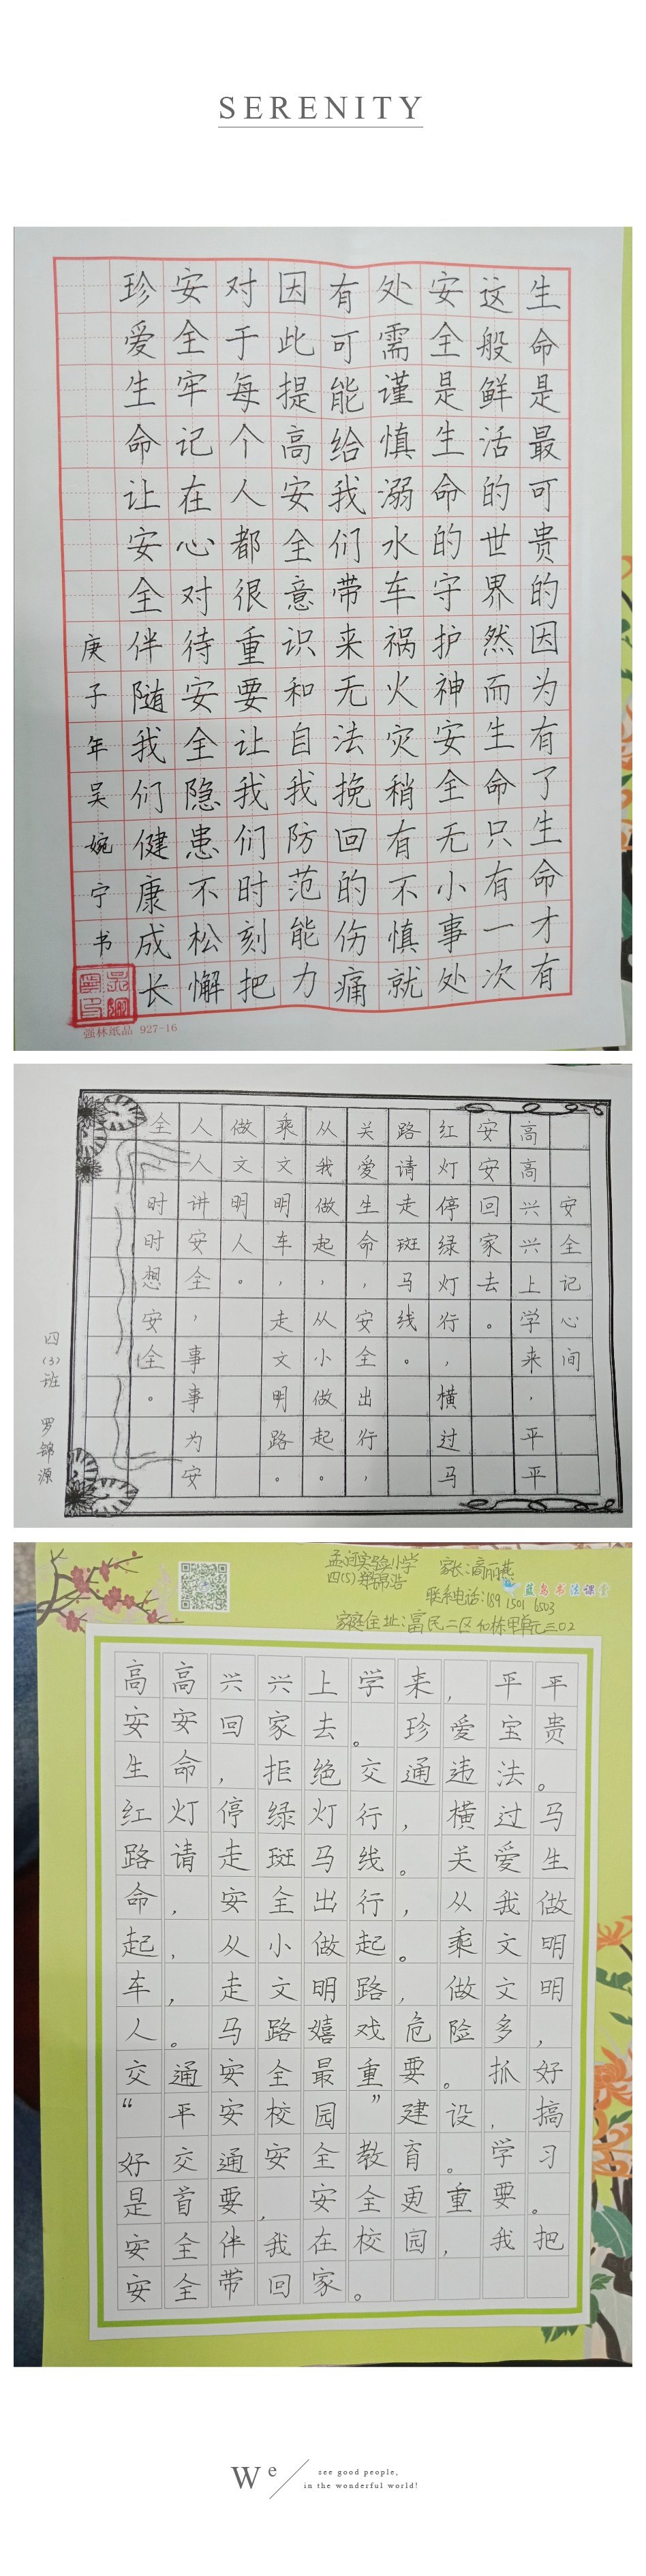 SERENITY
生命是最可贵的因为有了生命才有
这般鲜活的世界然而生命只有一次
安全是生命的守护神安全无小事处
处需谨慎溺水车祸火灾稍有不慎就
有可能给我们带来无法挽回的伤痛
因此提高安全意识和自我防范能力
对于每个人都很重要让我们时刻把
安全牢记在心对待安全隐患不松懈
珍爱生命让安全伴随我们健康成长
庚子年吴婉宁书
强林纸品 927-16
安全记心间
高高兴兴上学来,平平
安安回家去。
红灯停绿灯行,横过马
路请走斑马线。
关爱生命,安全出行,
从我做起,从小做起。
乘文明车,走文明路。
做文明人。
人人讲安全,事事为安
全 时时想安全。
四(3)班 罗锦源
孟河实验小学 家长:高丽燕
四(5)郑锦浩
联系电话:189 1501 6503
蓝鸟书法课堂
高高兴兴上学来,平平
安安回家去。珍爱宝贵
生命,拒绝交通违法。
红灯停绿灯行,横过马
路请走斑马线。关爱生
命,安全出行,从我做
起,从小做起。乘文明
车,走文明路,做文明
人。马路嬉戏危险多,
交通安全最重要。抓好
“平安校园”建设,搞
好交通安全教育。学习
是首要,安全更重要。
安全伴我在校园,我把
安全带回家。
We
see good people,
in the wonderful world!